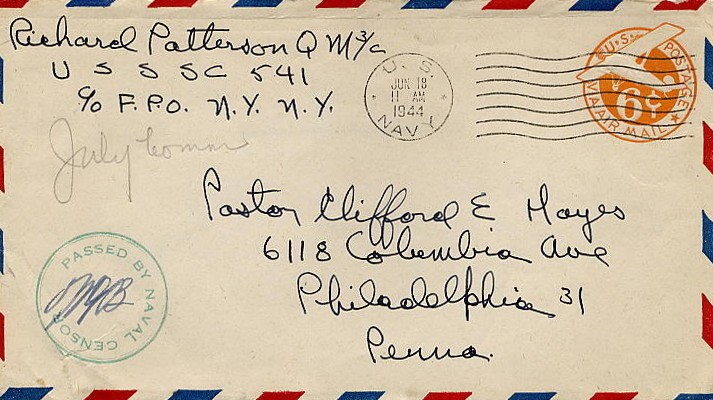 Richard Patterson Q M 3/c
U S S SC 541
c/o F.P.O. N.Y. N.Y.
U.S.
JUN 18
11 AM
1944
NAVY
U.S. POSTAGE
6¢
VIA AIR MAIL
July
Pastor Clifford E Hayes
6118 Columbia Ave
Philadelphia 31
Penna.
PASSED BY NAVAL CENSOR